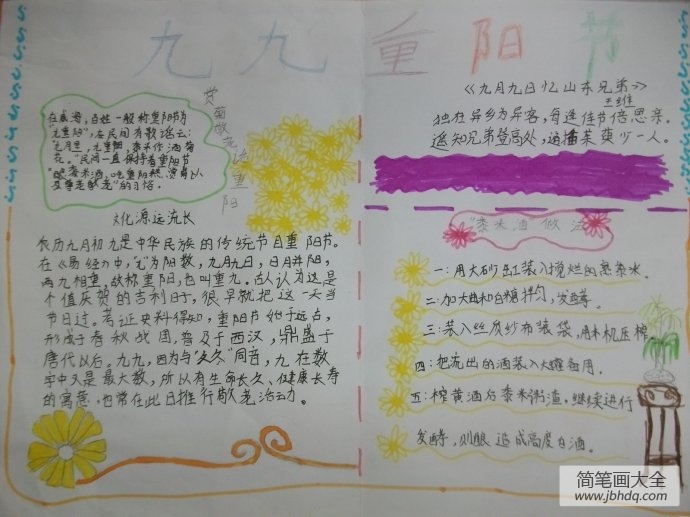 九九重阳节
赏菊敬老说重阳
在威海,百姓一般称重阳节为
"九重阳",在民间有歌谣云:
"九月里,九重阳,黍米作酒菊
花。"民间一直保持着重阳节
文化源远流长
农历九月初九是中华民族的传统节日重阳节。
在《易经》中,"九"为阳数,九月九日,日月并阳,
两九相重,故称重阳,也叫重九。古人认为这是
个值庆贺的吉利日子,很早就把这一天当
节日过。考证史料得知,重阳节始于远占,
形成于春秋战国,普及于西汉,鼎盛于
唐代以后。九九,因为与"久久"同音,九在数
字中又是最大数,所以有生命长久、健康长寿
的寓意,也常在此日推行敬老活动。
《九月九日忆山东兄弟》
王维
独在异乡为异客,每逢佳节倍思亲。
遥知兄弟登高处,遍插茱萸少一人。
"黍米酒做法
一:用大砂缸装入搅烂的熟黍米。
二:加大曲和白糖拌匀,发酵。
三:装入丝质纱布装袋,用木机压榨
四:把流出的酒装入大罐备用。
五:榨黄酒后黍米粥渣,继续进行
发酵,则酿造成高度白酒。
简笔画大全
www.jbhdq.com